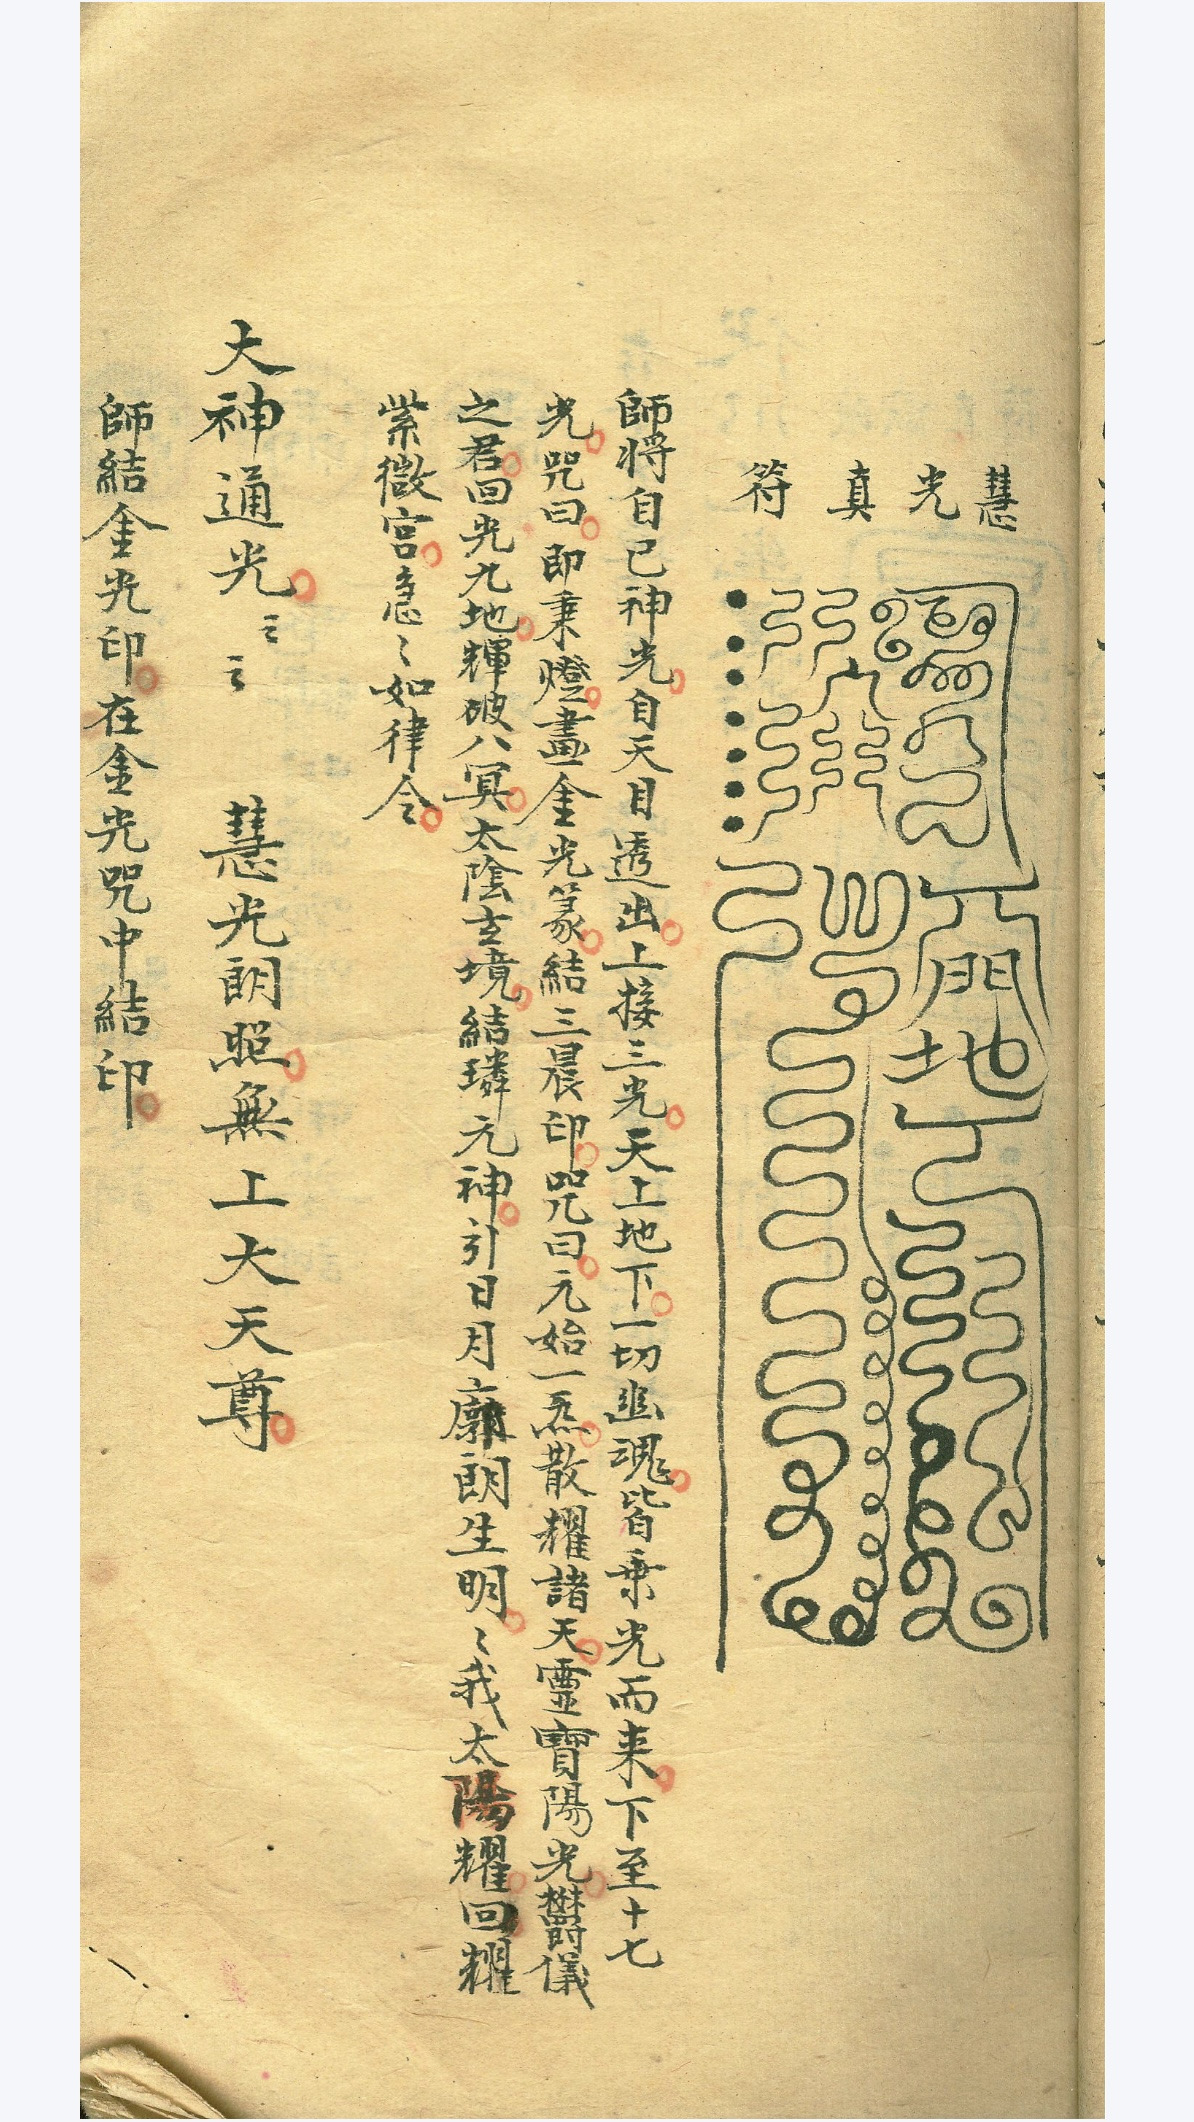 慧光真符
門
地
師將自己神光自天目透出上接三光天上地下一切幽魂皆乗光而来下至十七
光咒曰即秉燈畫金光篆結三晨印咒曰元始一炁散耀諸天靈寶陽光欝儀
之君回光九地輝破八冥太陰玄境結璘元神引日月廓朗生明〻我太陽耀回耀
紫微宮急〻如律令
大神通光 慧光朗照無上大天尊
師結金光印在金光咒中結印